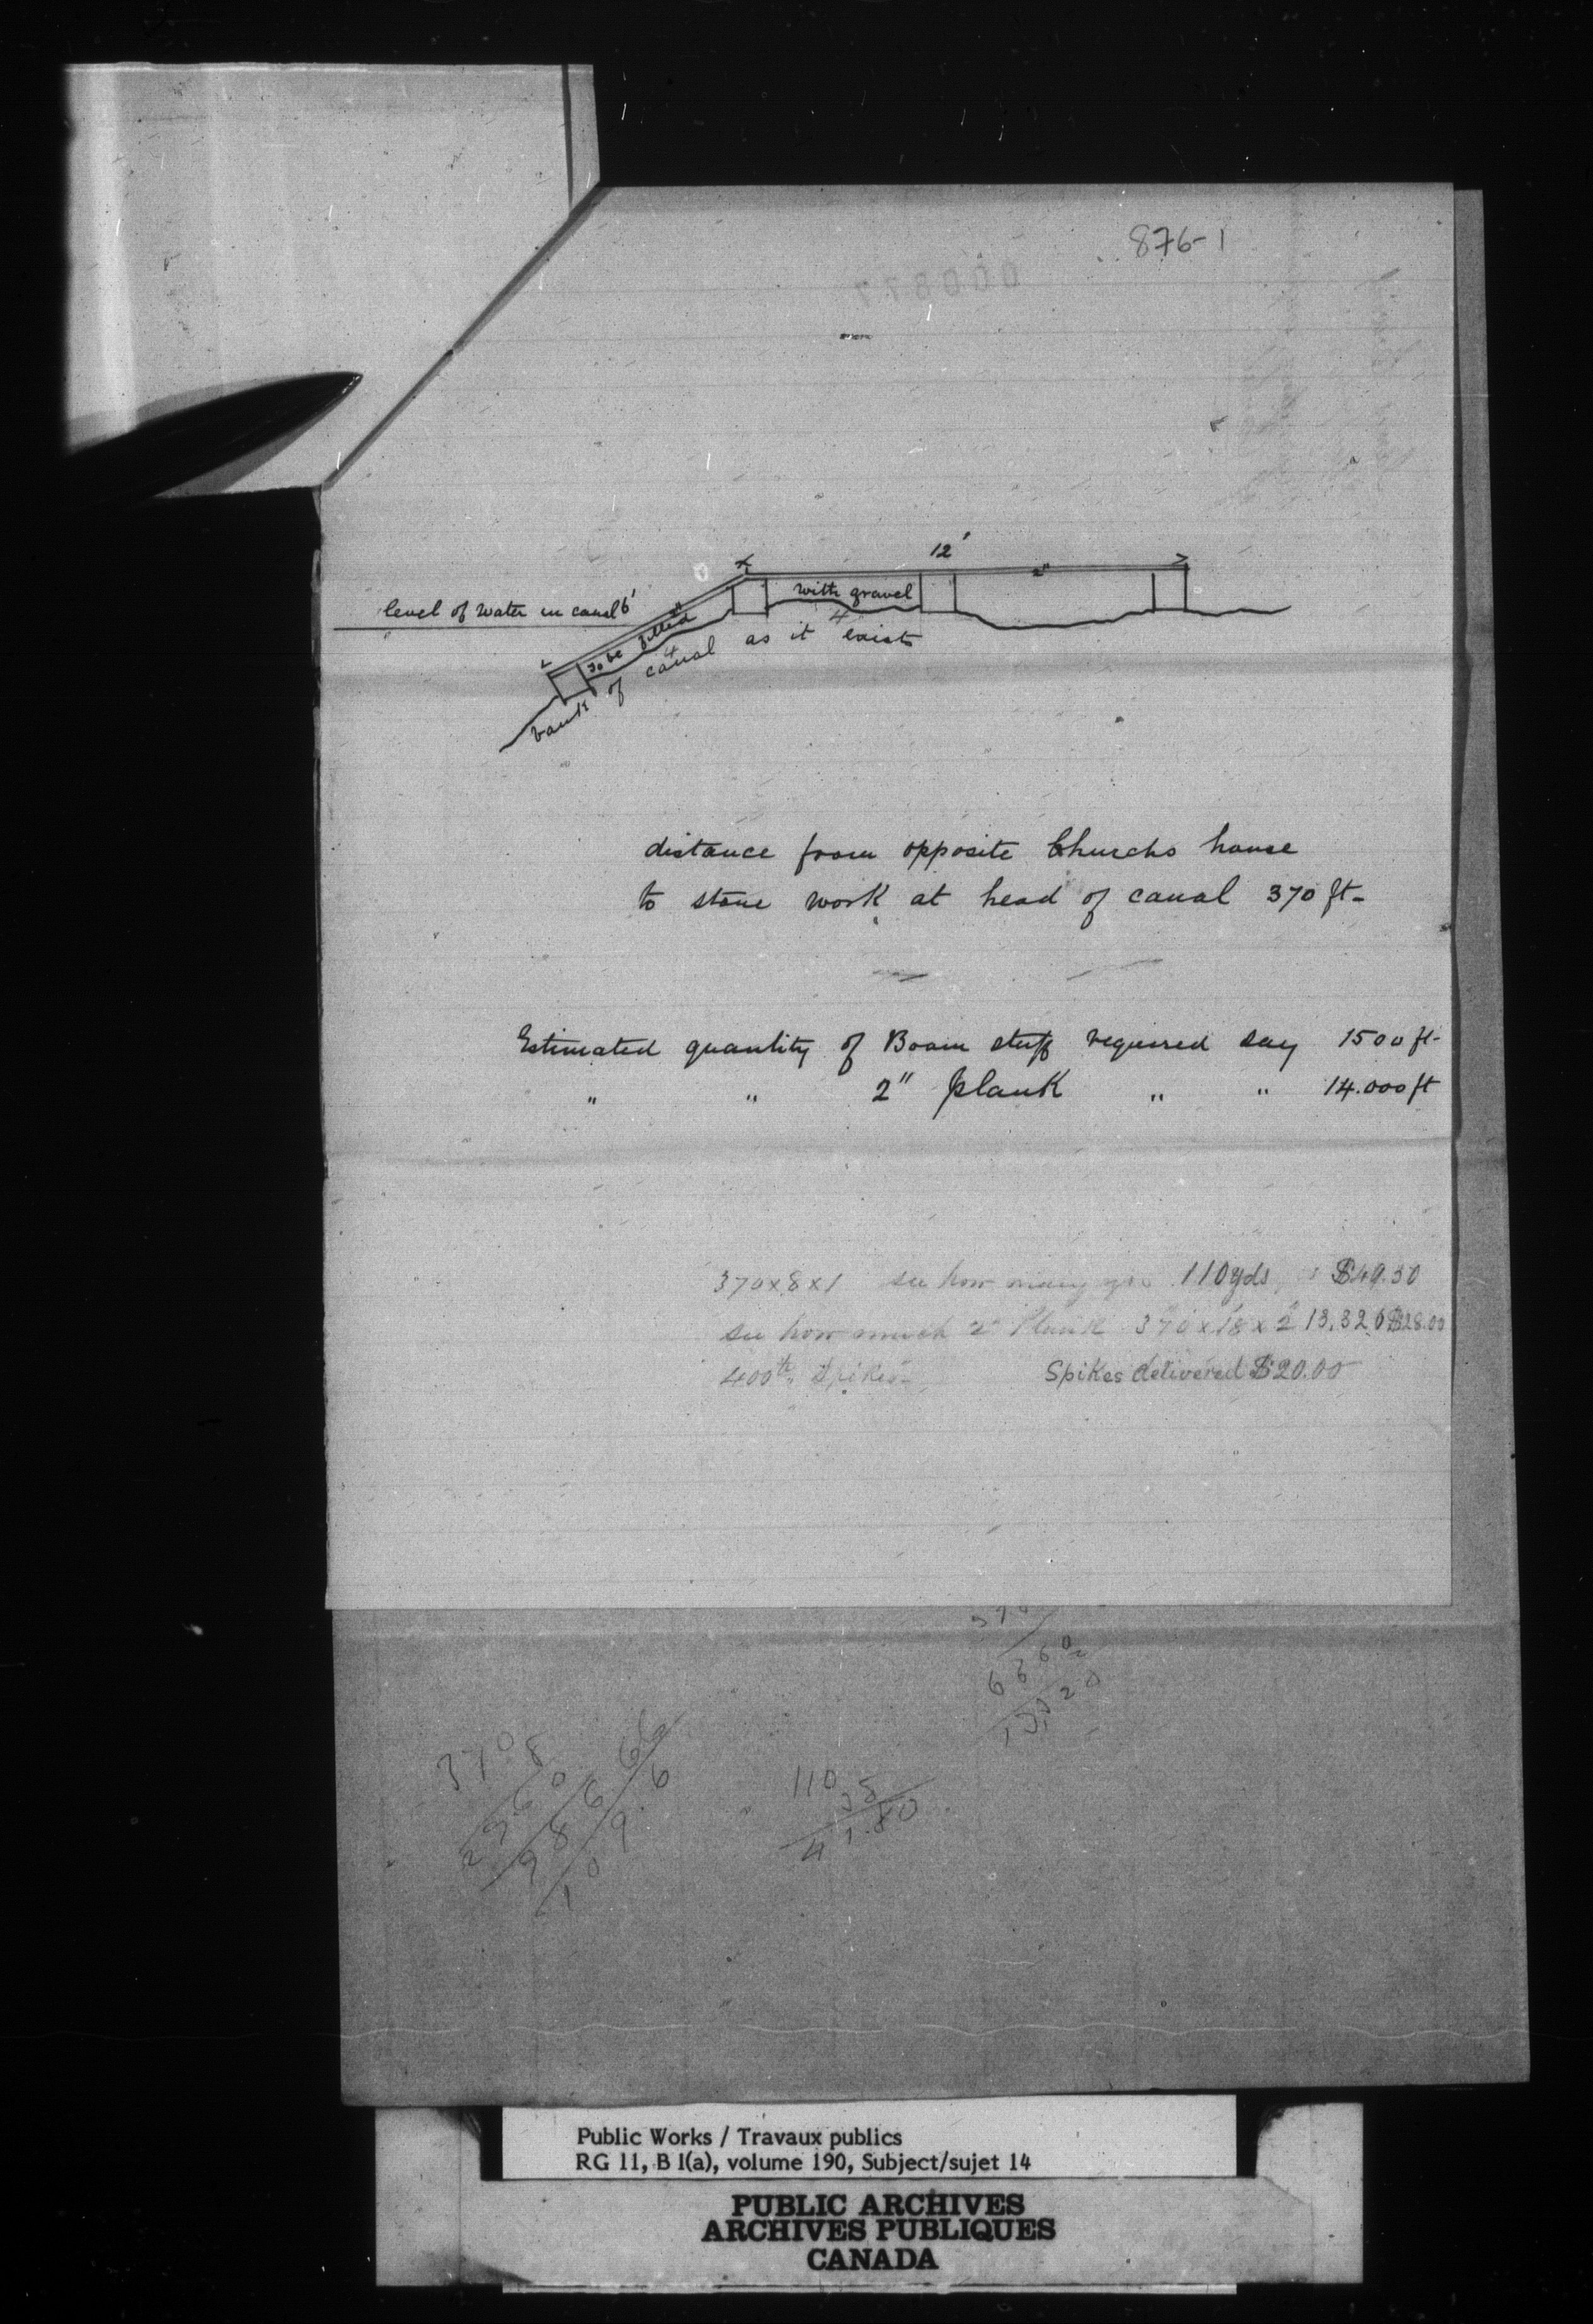 876-1
000877
12'
2"
level of water in canal 6'
to be filled with gravel
bank of canal as it exists
distance from opposite Churchs house
to stone work at head of canal 370 ft-
Estimated quantity of Boam stuff required say 1500 ft-
" " 2" plank " " 14.000 ft
370 x 8 x 1 see how many yds 110 yds $49.50
see how much 2" Plank 370 x 18 x 2 13,320 $128.00
400 lb Spikes Spikes delivered $20.00
6660
2
13320
370
8
2960
986
6
109
110
38
41.80
Public Works / Travaux publics
RG 11, B 1(a), volume 190, Subject/sujet 14
PUBLIC ARCHIVES
ARCHIVES PUBLIQUES
CANADA